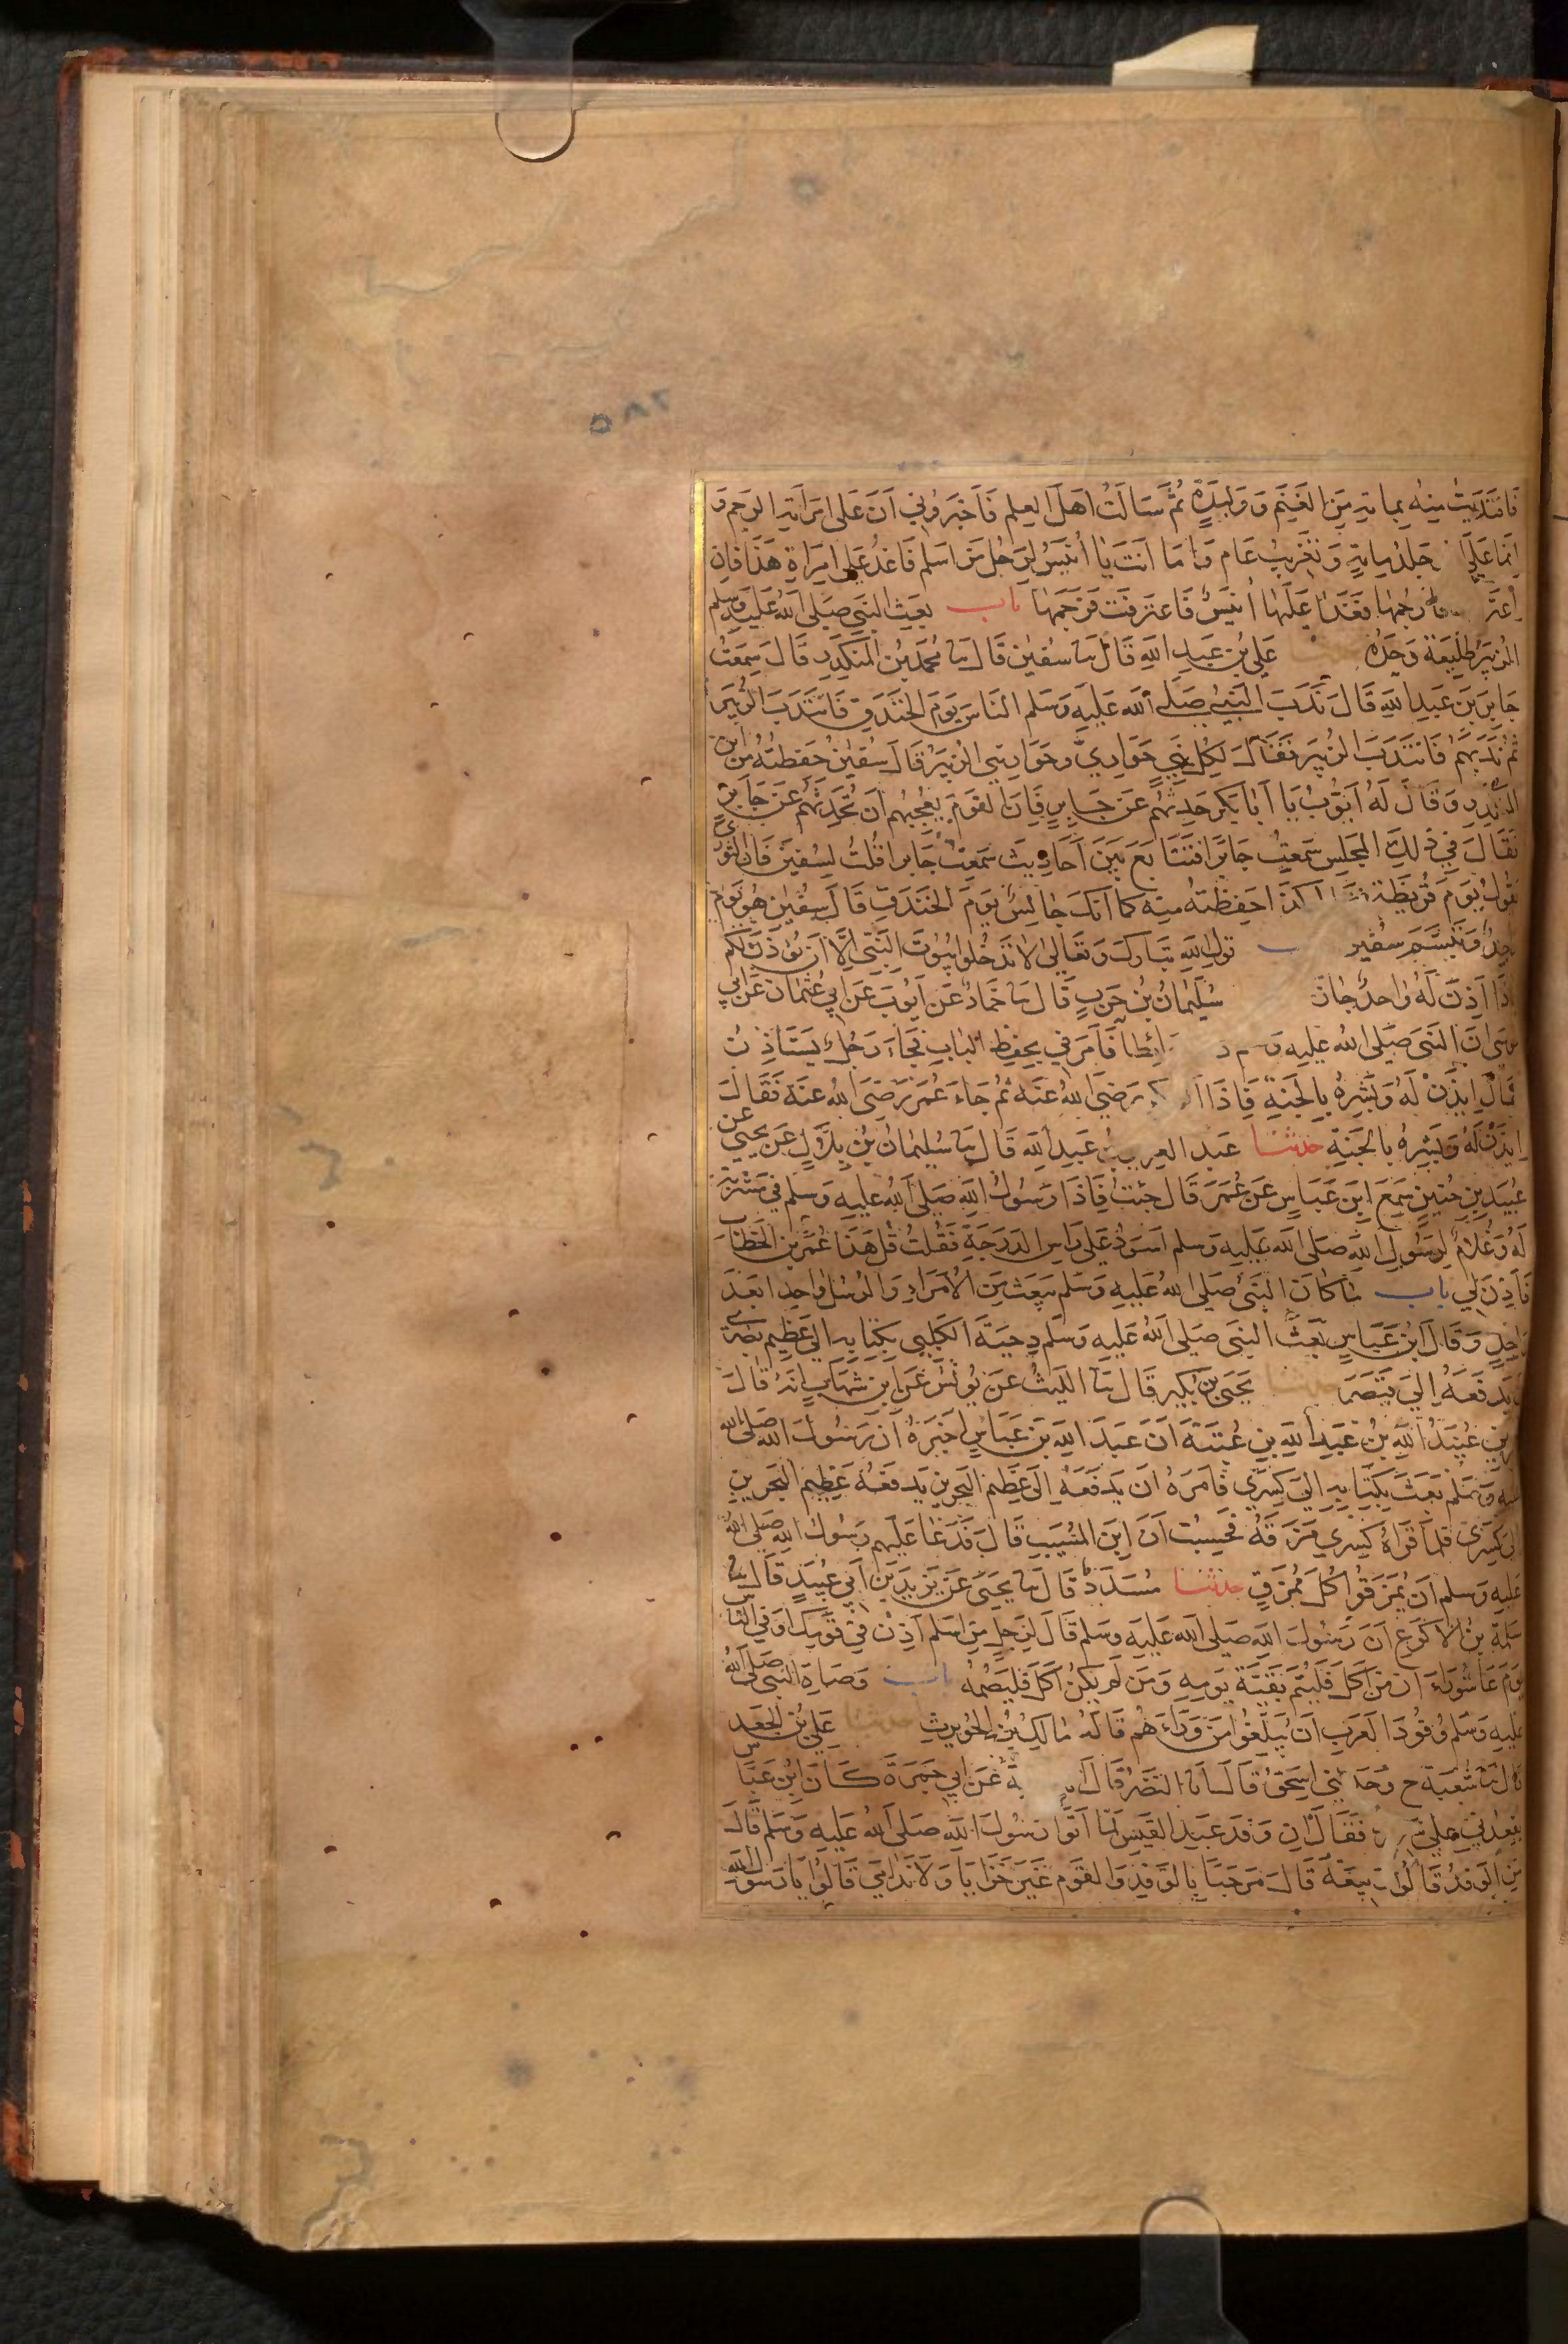 فَافْتَدَيْتُ مِنْهُ بِمِايَةٍ مِنَ الغَنَمِ وَوَلِيدَةٍ ثُمَّ سَالْتُ اَهْلَ العِلْمِ فَاَخْبَرُونِي اَنَّ عَلَى امْرَاَتِهِ الرَّجْمَ وَ
اِنَّمَا عَلَى جَلْدُ مِايَةٍ وَتَغْرِيبُ عَامٍ وَاَمَا اَنْتَ يَا اُنَيْسُ لِرَجُلٍ مِنْ اَسْلَمَ فَاغْدُ عَلَى امْرَاةِ هَذَا فَاِنِ
اعْتَرَ فارْجُمْهَا فَغَدَا عَلَيْهَا اُنَيْسٌ فَاعْتَرَفَتْ فَرَجَمَهَا باب بعث النبي صلى الله عليه وسلم
الزُبَيْرَ طَلِيعَةً وَحْدَهُ عَلِيُّ بْنُ عَبْدِ اللهِ قَالَ ثنا سُفْيٰنُ قَالَ ثنا مُحَمَّدُ بْنُ المُنْكَدِرِ قَالَ سَمِعْتُ
جَابِرَ بْنَ عَبْدِ اللهِ قَالَ نَدَبَ النَّبِيُّ صَلَى الله عَلَيْهِ وَسَلم النَّاسَ يَوْمَ الخَنْدَقِ فَانْتَدَبَ الزُّبَيْرُ
ثُمَّ نَدَبَهُمْ فَانْتَدَبَ الزُبَيْر فَقَالَ لِكُلِّ نَبِيٍّ حَوَارِيٌّ وحَوَارِيِّي الزُبَيْرُ قَالَ سُفْيٰنُ حَفِظْتُهُ مِن ابن
المُنْكَدِرِ وَقَالَ لَهُ اَيُّوبُ يَا اَبَا بَكْرٍ حَدِّثْهُمْ عَنْ جَابِرٍ فَاِنَّ القَوْمَ يُعْجِبُهُمْ اَنْ تُحَدِّثَهُمْ عَنْ جَابِرٍ
فَقَالَ فِي ذٰلِكَ المَجْلِسِ سَمِعْتُ جَابِرًا فَتَتَابَعَ بَيْنَ اَحَادِيثَ سَمِعْتُ جَابِرا قُلْتُ لِسُفْيٰنَ فَاِنَّ الثَّوْرِيَّ
يَقُولُ يَوْمَ قُرَيْظَةَ كَذَا حَفِظْتُهُ مِنْهُ كَمَا اَنَّكَ جَالِسٌ يَوْمَ الخَنْدَقِ قَالَ سُفْيٰنُ هُوَ يَوْم
وَاحِدٌ وَتَبَسَّمَ سُفْيٰن قول الله تبارك وتعالى لا تدخلوا بيوت النبي الا ان يؤذن لكم
فَاِذَا اَذِنَ لَهُ وَاحِدٌ جَازَ سُلَيْمَانُ بْنُ حَرْبٍ قَالَ ثنا حَمَّادٌ عَنْ اَيُّوبَ عَنْ اَبِي عُثْمَانَ عَنْ اَبِي
مُوسَى اَنَّ النَّبِيَّ صَلَى الله عَلَيْهِ وَ ائِطًا فَاَمَرَنِي بِحِفْظِ البَابِ فَجَاءَ رَجُلٌ يَسْتَاذِنُ
قَالَ اِيذَنْ لَهُ وَبَشِّرْهُ بِالْجَنَّةِ فَاِذَا رَضِيَ الله عَنْهُ ثُمَّ جَاءَ عُمَرُ رَضِيَ الله عَنْهُ فَقَالَ
اِيذَنْ لَهُ وَبَشِّرْهُ بالجَنَّةِ حدثنا عَبْدُ العزيز بْنُ عَبْدِ اللهِ قَالَ ثنا سُلَيْمَانُ بْنُ بِلَالٍ عَنْ يَحْيَى عن
عُبَيْدِ بْنِ حُنَيْنٍ سَمِعَ ابْنَ عَبَّاسٍ عَنْ عُمَرَ قَالَ جِئْتُ فَاِذَا رَسُولُ اللهِ صَلَى الله عَلَيْهِ وَسَلم فِي مَشْرُبَةٍ
لَهُ وَغُلَامٌ لِرَسُولِ اللهِ صَلَى الله عَلَيْهِ وَسلم اَسْوَدُ عَلَى رَاسِ الدَرَجَةِ فَقُلْتُ قُلْ هَذَا عُمَرُ بْنُ الخَطَّابِ
فَاَذِنَ لِي باب مَا كَانَ النَّبِيُّ صَلَى الله عَلَيْهِ وَسَلم يَبْعَثُ مِنَ الاُمَرَاءِ وَالرُسُلِ وَاحِدا بَعْدَ
وَاحِدٍ وَقَالَ ابْنُ عَبَّاسٍ بَعَثَ النبي صلى الله عليه وسلم دِحْيَةَ الكَلْبِي بِكِتَابِهِ اِلَى عَظِيمِ بُصْرَى
يَدْفَعُهُ اِلَى قَيْصَرَ حدثنا يَحْيَى بْنُ بُكَيْرٍ قَالَ ثنا اللَّيْثُ عَنْ يُونُسَ عَنِ ابْنِ شِهَابٍ اَنَّهُ قَالَ
عُبَيْدُ اللهِ بْنُ عَبْدِ اللهِ بْنِ عُتْبَةَ اَنَّ عَبْدَ اللهِ بْنَ عَبَّاسٍ اَخْبَرَهُ اَنَّ رَسُولَ الله صلى الله
عليه وَسَلم بَعَثَ بِكِتَابِهِ اِلَى كِسْرَى فَاَمَرَهُ اَنْ يَدْفَعَهُ اِلَى عَظِيْمِ البَحْرينِ يَدْفَعُهُ عَظِيْمُ البَحْرَينِ
اِلَى كِسْرَى فَلَمَّا قَرَاهُ كِسْرَى مَزَّقَهُ فَحَسِبْتُ اَنَّ ابْنَ المُسَيَّبِ قَالَ فَدَعَا عَلَيْهِم رَسُولُ اللهِ صلى الله
عَلَيهِ وَسَلم اَنْ يُمَزَّقُوا كُلَّ مُمَزَّقٍ حدثنا مُسَدَّدٌ قَالَ ثنا يَحْيَى عَنْ يَزِيدَ بْنِ اَبِي عُبَيْدٍ قَالَ ثنا
سَلَمَةُ بْنُ الاَكْوَعِ اَنَّ رَسُولَ اللهِ صَلَى الله عَلَيْهِ وَسلم قَالَ لِرَجُلٍ مِنْ اَسْلَمَ اَذِّنْ فِي قَوْمِكَ اَوْ فِي النَّاسِ
يَوْمَ عَاشُورَاءَ اَنَّ مَنْ اَكَلَ فَلْيُتِمَّ بَقِيَّةَ يَوْمِهِ وَمَنْ لَمْ يَكُنْ اَكَلَ فَلْيَصُمْهُ باب وَصَاةِ النَّبِيِّ صلى الله
عَلَيْهِ وَسَلم وُفُودَ العَرَبِ اَنْ يُبَلِّغُوا مَنْ وَرَاءَهُمْ قَالَهُ مَالِكُ بْنُ الحُوَيْرِثِ حدثنا عَلِيُّ بْنُ الجَعْدِ
قَالَ ثنا شُعْبَةُ ح وَحَدَّثَنِي اِسْحَقُ قَالَ اَنَا النَّضْرُ قَالَ عَنْ اَبِي جَمْرَةَ كَانَ ابْنُ عَبَّاسٍ
يُقْعِدُنِي عَلَى فَقَالَ اِنَّ وَفْدَ عَبْدِ القَيْسِ لَمَّا اَتَوْا رَسُولَ اللهِ صَلَى الله عَلَيْهِ وَسَلم قَالَ
مَنِ الوَفْدُ قَالُوا رَبِيعَةُ قَالَ مَرْحَبًا بِالوَفْدِ وَالقَوْمِ غَيْرَ خَزَايَا وَلَا نَدَامَى قَالُوا يَا رَسُولَ اللهِ